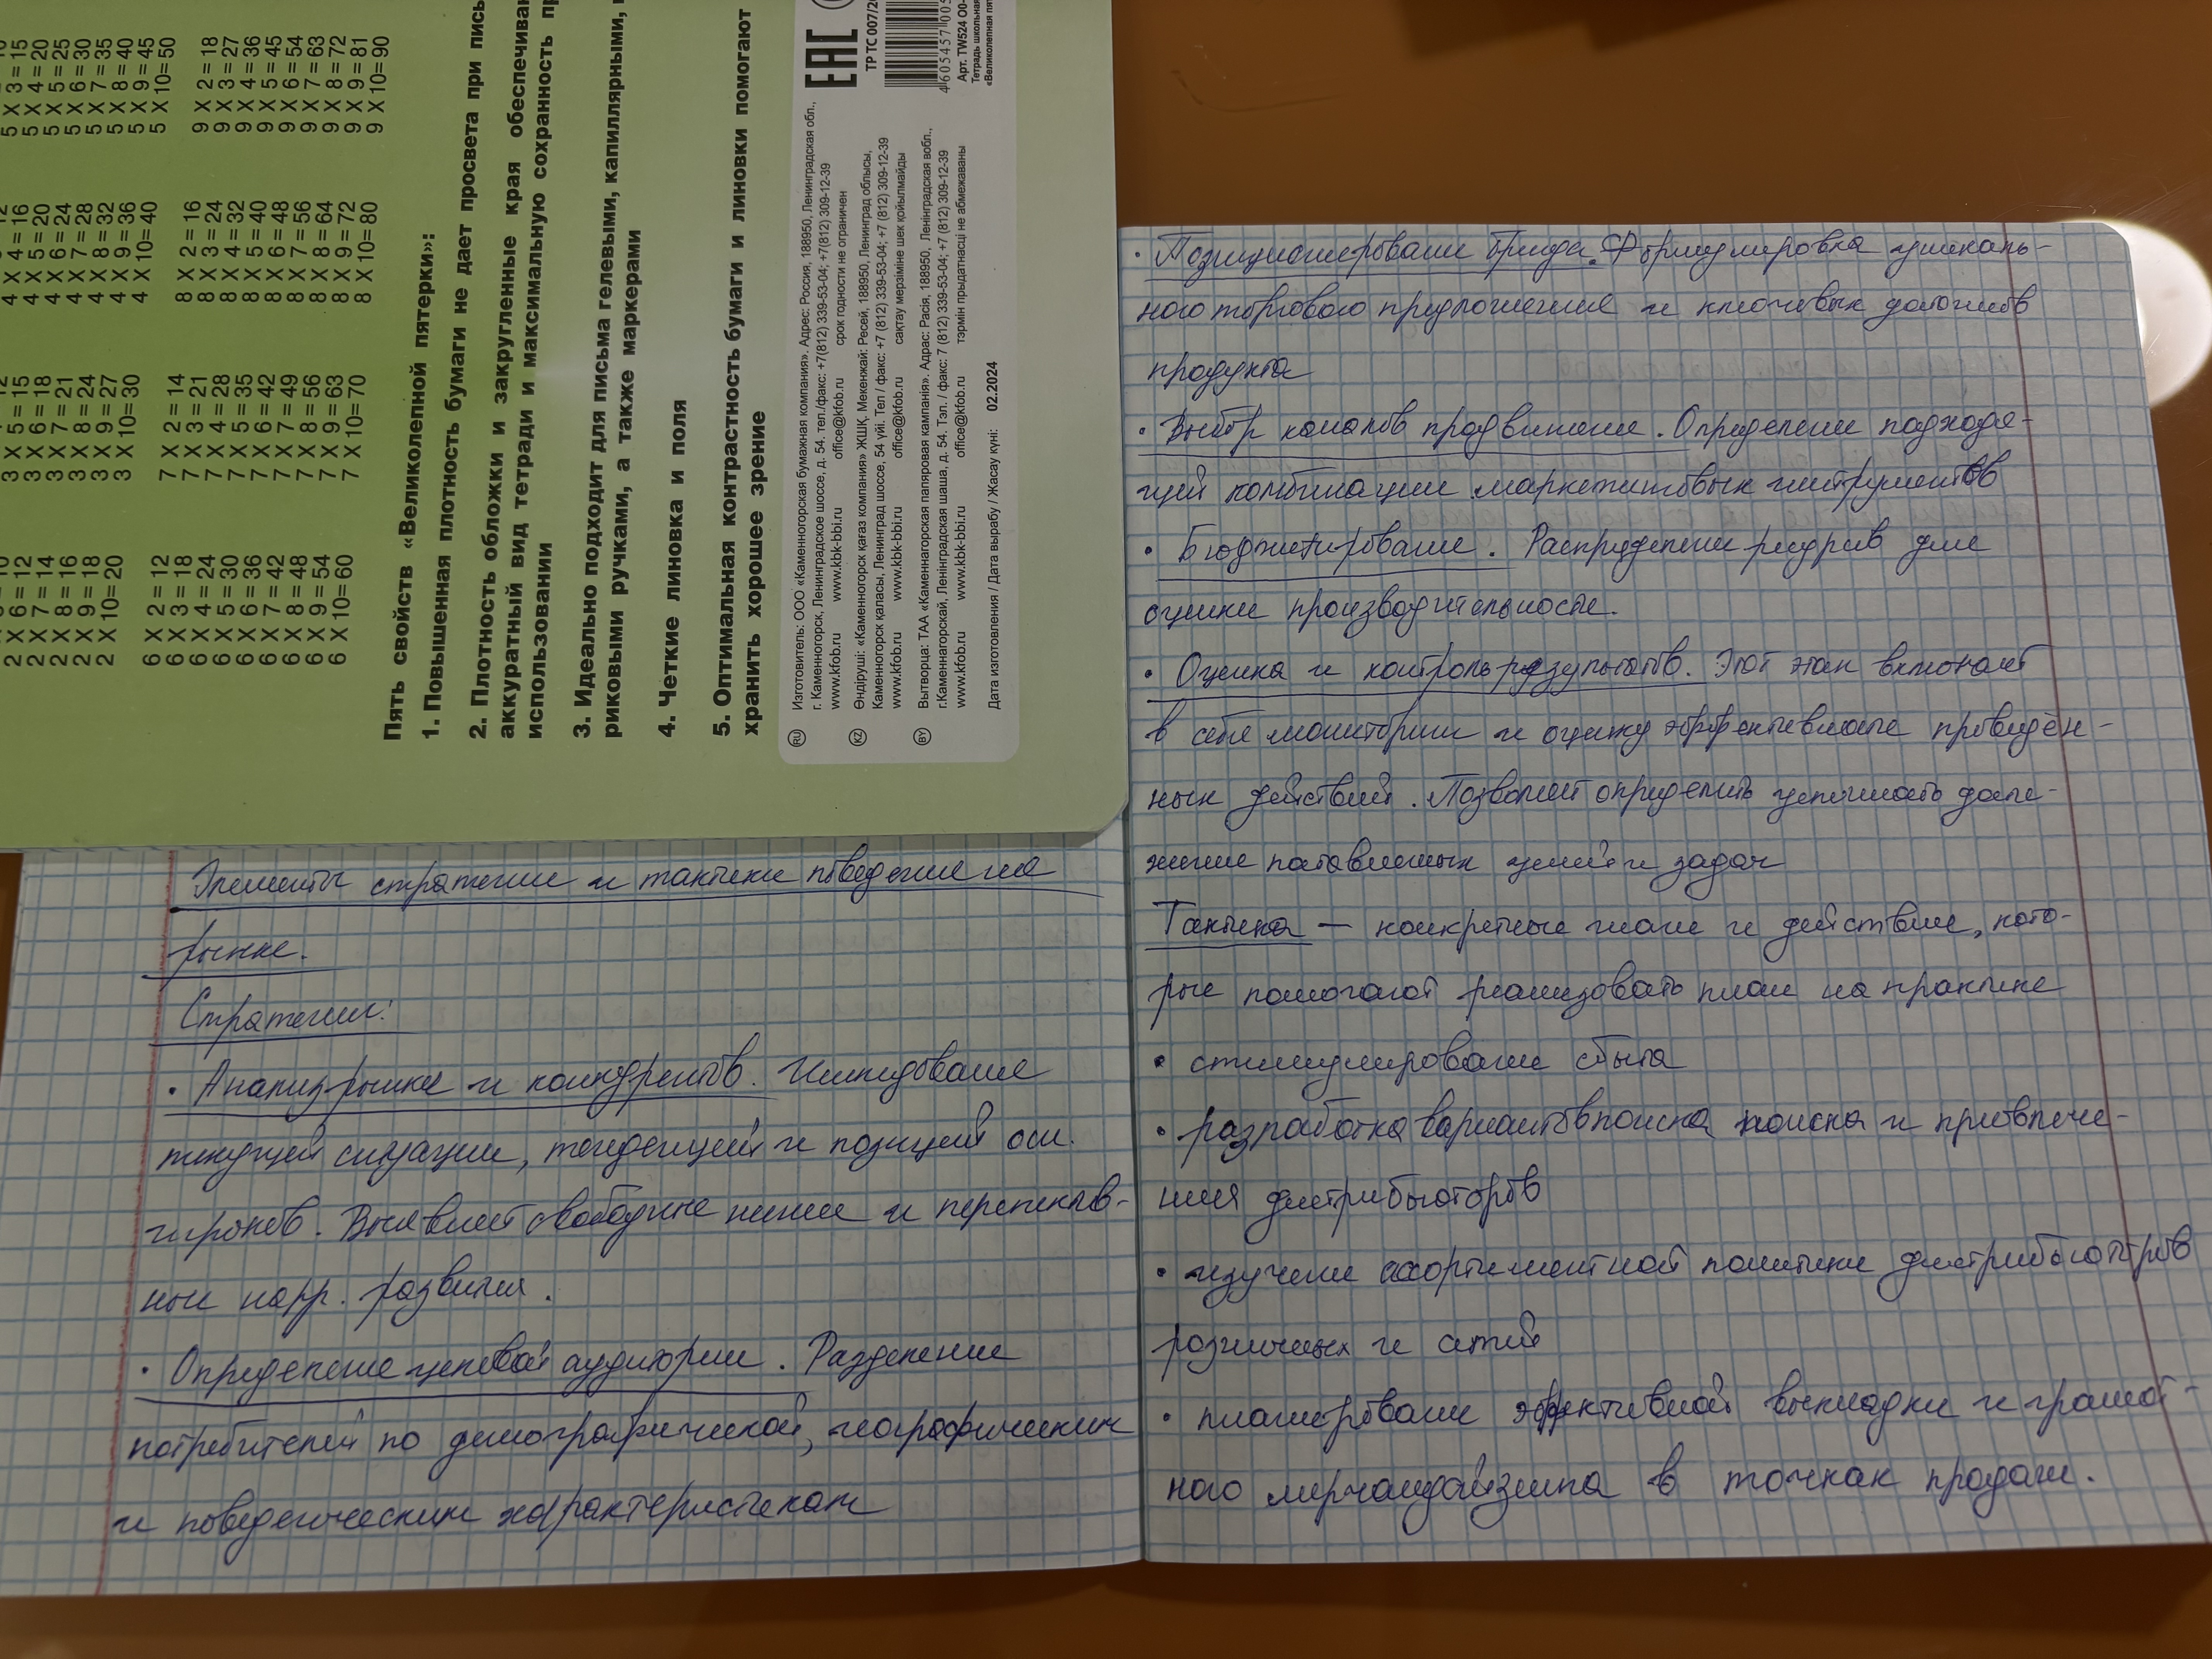 5 X 3 = 15
5 X 4 = 20
5 X 5 = 25
5 X 6 = 30
5 X 7 = 35
5 X 8 = 40
5 X 9 = 45
5 X 10= 50
4 X 4 = 16
4 X 5 = 20
4 X 6 = 24
4 X 7 = 28
4 X 8 = 32
4 X 9 = 36
4 X 10= 40
3 X 5 = 15
3 X 6 = 18
3 X 7 = 21
3 X 8 = 24
3 X 9 = 27
3 X 10= 30
2 X 6 = 12
2 X 7 = 14
2 X 8 = 16
2 X 9 = 18
2 X 10= 20
9 X 2 = 18
9 X 3 = 27
9 X 4 = 36
9 X 5 = 45
9 X 6 = 54
9 X 7 = 63
9 X 8 = 72
9 X 9 = 81
9 X 10= 90
8 X 2 = 16
8 X 3 = 24
8 X 4 = 32
8 X 5 = 40
8 X 6 = 48
8 X 7 = 56
8 X 8 = 64
8 X 9 = 72
8 X 10= 80
7 X 2 = 14
7 X 3 = 21
7 X 4 = 28
7 X 5 = 35
7 X 6 = 42
7 X 7 = 49
7 X 8 = 56
7 X 9 = 63
7 X 10= 70
6 X 2 = 12
6 X 3 = 18
6 X 4 = 24
6 X 5 = 30
6 X 6 = 36
6 X 7 = 42
6 X 8 = 48
6 X 9 = 54
6 X 10= 60
Пять свойств «Великолепной пятерки»:
1. Повышенная плотность бумаги не дает просвета при
2. Плотность обложки и закругленные края
аккуратный вид тетради и максимальную сохранность
использовании
3. Идеально подходит для письма гелевыми, капиллярными,
риковыми ручками, а также маркерами
4. Четкие линовка и поля
5. Оптимальная контрастность бумаги и линовки помогают
хранить хорошее зрение
RU Изготовитель: ООО «Каменногорская бумажная компания». Адрес: Россия, 188950, Ленинградская обл.,
г. Каменногорск, Ленинградское шоссе, д. 54. тел./факс: +7(812) 339-53-04; +7(812) 309-12-39
www.kfob.ru www.kbk-bbi.ru office@kfob.ru срок годности не ограничен
KZ Өндіруші: «Каменногорск қағаз компания» ЖШҚ, Мекенжай: Ресей, 188950, Ленинград облысы,
Каменногорск қаласы, Ленинград шоссе, 54 үйі. Тел / факс: +7 (812) 339-53-04; +7 (812) 309-12-39
www.kfob.ru www.kbk-bbi.ru office@kfob.ru сақтау мерзіміне шек қойылмайды
BY Вытворца: ТАА «Каменнагорская папяровая кампанія». Адрас: Расія, 188950, Ленінградская вобл.,
г.Каменнагорскай, Ленінградская шаша, д. 54. Тэл. / факс: 7 (812) 339-53-04; +7 (812) 309-12-39
www.kfob.ru www.kbk-bbi.ru office@kfob.ru тэрмін прыдатнасці не абмежаваны
Дата изготовления / Дата вырабу / Жасау күні: 02.2024
EAC
ТР ТС 007/20
4 605457 005
Арт. TW524
Тетрадь школьная
«Великолепная
Элементы стратегии и тактики поведения на
рынке.
Стратегии:
• Анализ рынка и конкурентов. Исследование
текущей ситуации, тенденций и позиций осн.
игроков. Выявляет свободные ниши и перспектив-
ные напр. развития.
• Определение целевой аудитории. Разделение
потребителей по демографической, географическим
и поведенческим характеристикам
• Позиционирование бренда. Формулировка уникаль-
ного торгового предложения и ключевых
продукта
• Выбор каналов продвижения. Определение подходя-
щей комбинации маркетинговых инструментов
• Бюджетирование. Распределение ресурсов для
оценки производительности.
• Оценка и контроль результатов. Этот этап включает
в себя мониторинг и оценку эффективности проведён-
ных действий. Позволяет определить успешность дости-
жения поставленных целей и задач
Тактика — конкретные шаги и действия, кото-
рые помогают реализовать план на практике
• стимулирование сбыта
• разработка вариантов поиска поиска и привлече-
ния дистрибьюторов
• изучение ассортиментной политики дистрибьюторов
розничных и сетей
• планирование эффективной выкладки и грамот-
ного мерчандайзинга в точках продаж.